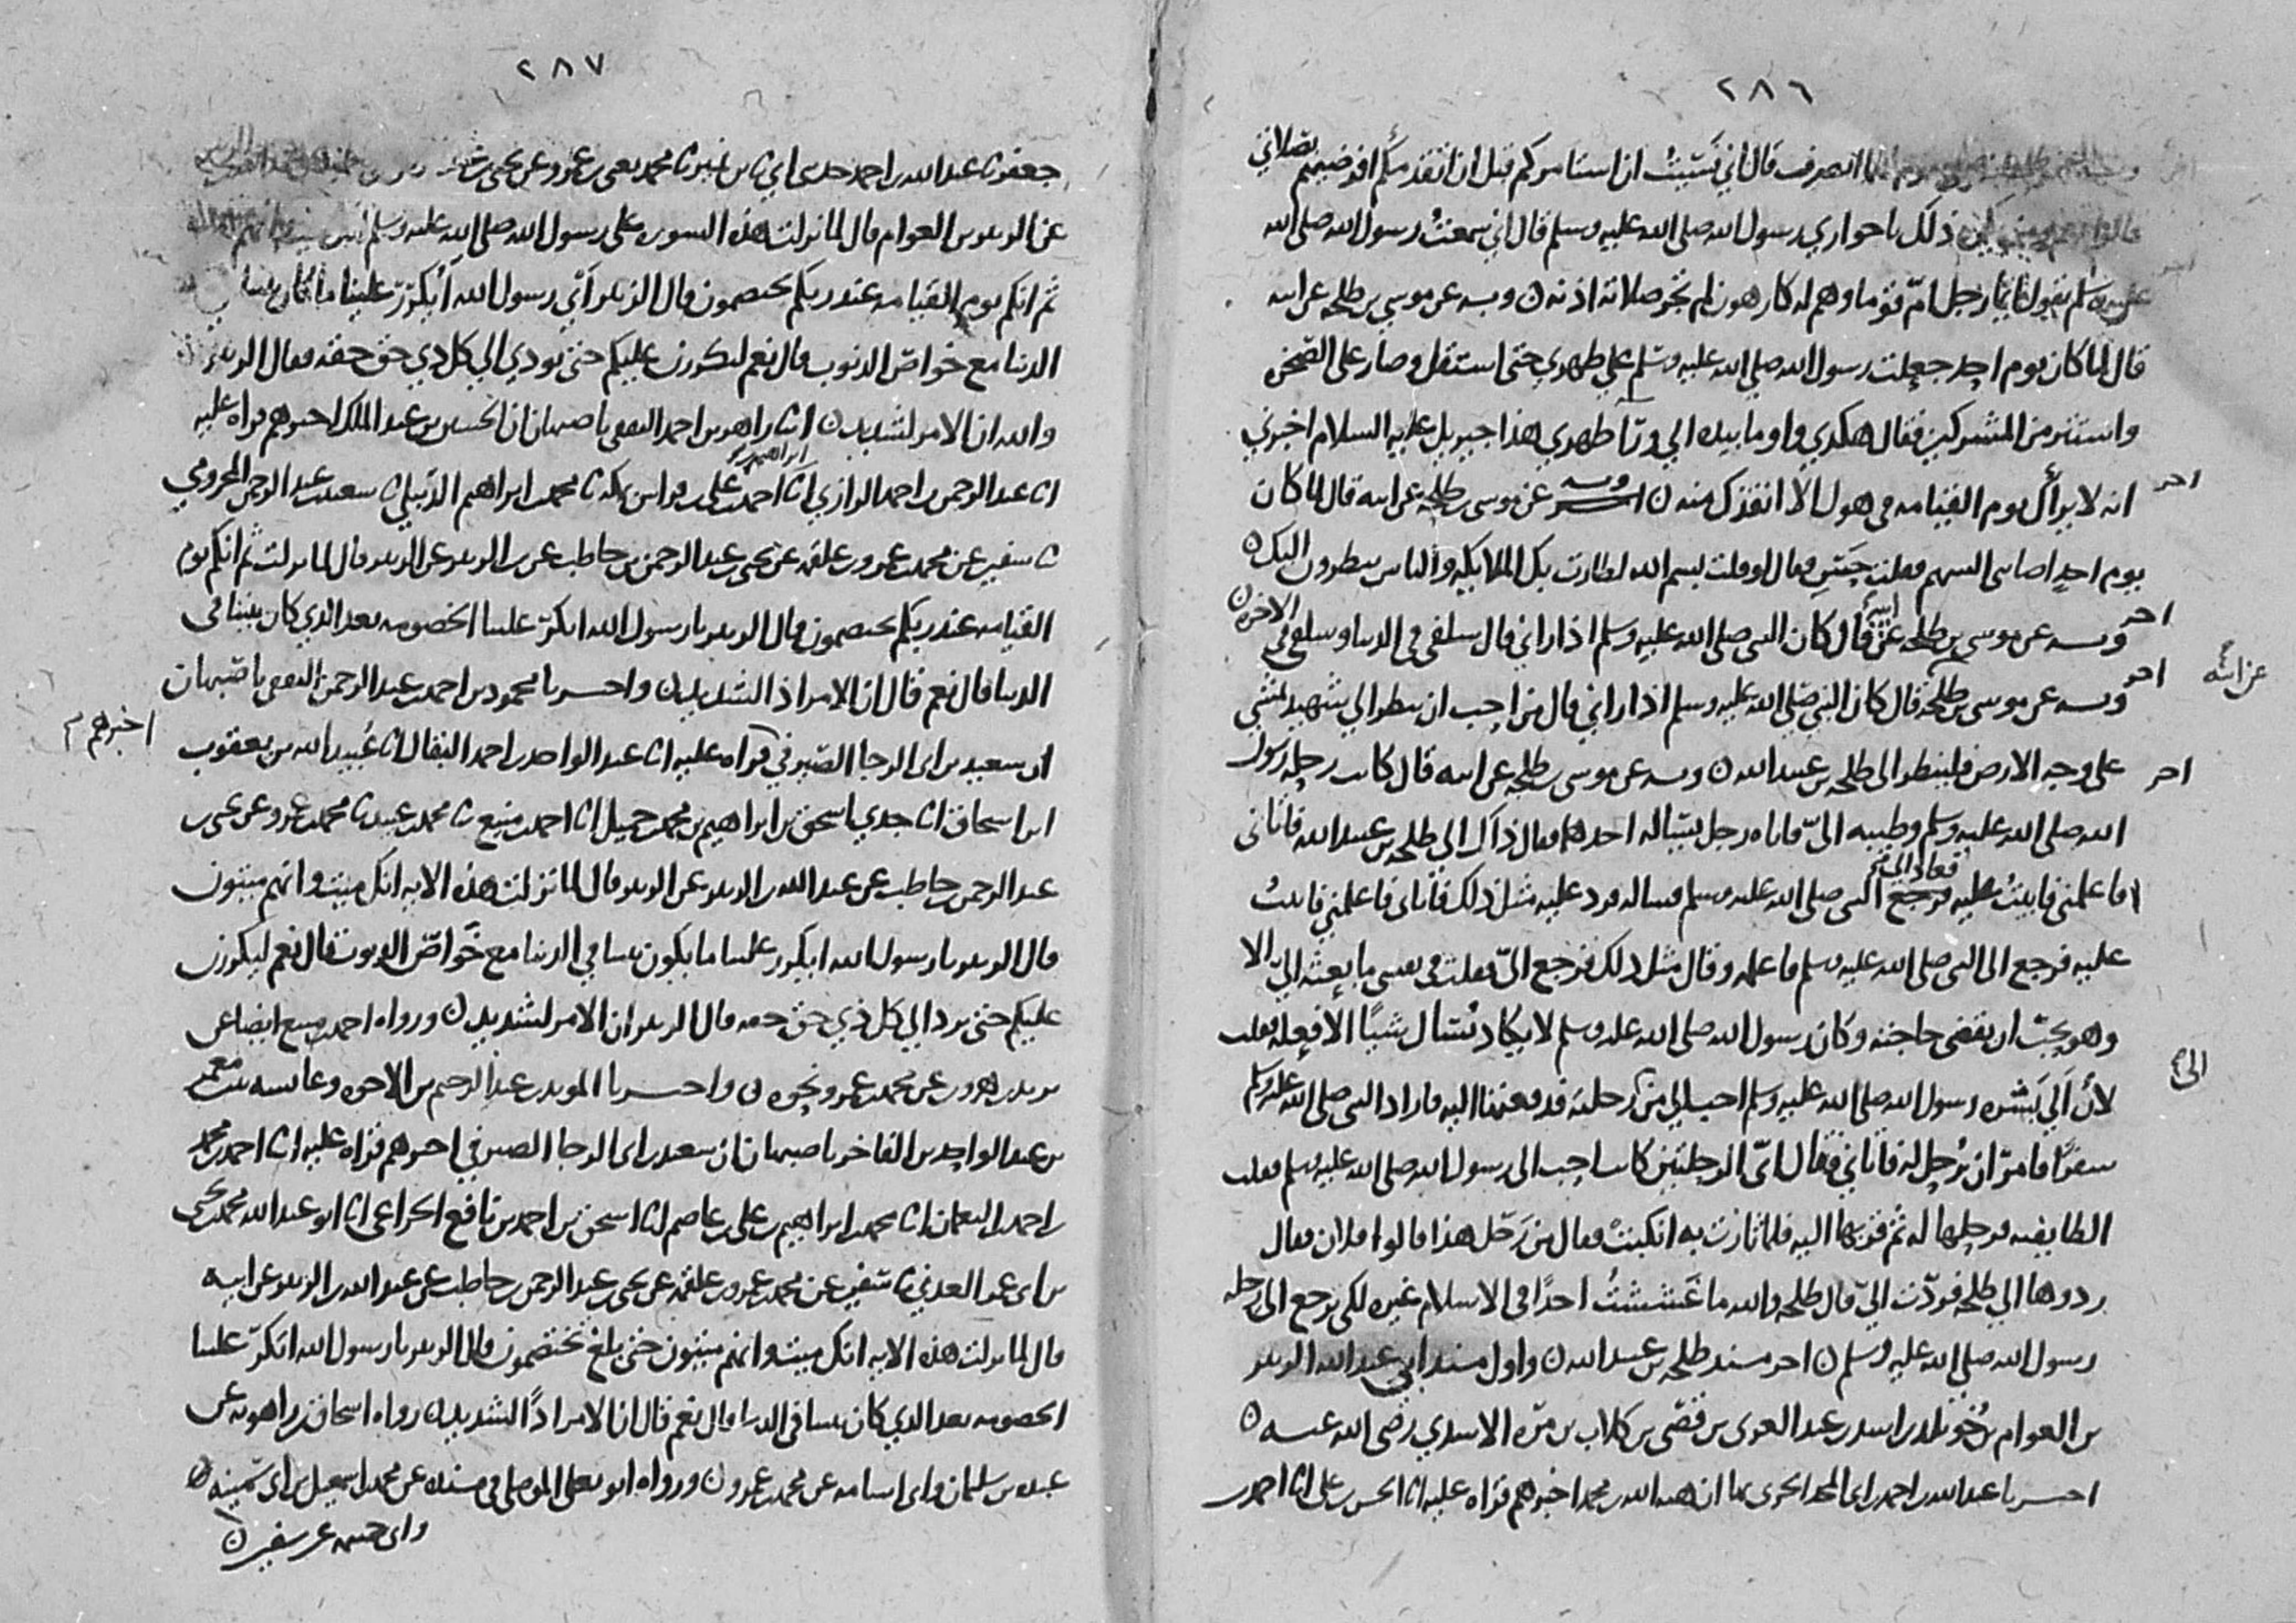 ٢٨٦
انصرف قال اني نسيت ان استامركم قبل ان اتقدمكم افرضيتم بصلاتي
ذلك يا حواري رسول الله صلى الله عليه وسلم قال اني سمعت رسول الله صلى الله
عليه وسلم يقول ايما رجل ام قوما وهم له كارهون لم تجز صلاته اذنه ن وبه عن موسى بن طلحه عن ابيه
قال لما كان يوم احد جعلت رسول الله صلى الله عليه وسلم على ظهري حتى استقل وصار على الصخره
واستتر من المشركين فقال هكذي واوما بيده الي ورا ظهري هذا جبريل عليه السلام اخبرني
اخر
انه لا يراك يوم القيامه في هول الا انقذك منه ن وبه عن موسى بن طلحه عن ابيه قال لما كان
يوم احد اصابني السهم فقلت حس فقال لو قلت بسم الله لطارت بك الملايكه والناس ينظرون اليك ن
اخر
وبه عن موسى بن طلحه عن ابيه قال كان النبي صلى الله عليه وسلم اذا راني قال سلفي في الدنيا وسلفي في الاخره ن
اخر
وبه عن موسى بن طلحه قال كان النبي صلى الله عليه وسلم اذا راني قال من احب ان ينظر الي شهيد يمشي
عن ابيه
على وجه الارض فلينظر الى طلحه بن عبيد الله ن وبه عن موسى بن طلحه عن ابيه قال كانت رحله رسول
اخر
الله صلى الله عليه وسلم وطيبه الي فاتاه رجل يساله احدهما فقال ذاك الي طلحه بن عبيد الله فاتاني
فاعلمني فابيت عليه فرجع الى النبي صلى الله عليه وسلم فساله فرد عليه مثل ذلك فاتاني فاعلمني فابيت
عليه فرجع الى النبي صلى الله عليه وسلم فاعلمه وقال مثل ذلك فرجع الي فقلت في نفسي ما بعثه الي الا
وهو يحب ان يقضي حاجته وكان رسول الله صلى الله عليه وسلم لا يكاد يسال شيا الا فعله فقلت
الي
لان آلي بشره رسول الله صلى الله عليه وسلم احب الي من رحلته فدفعتها اليه فاراد النبي صلى الله عليه وسلم
سفرا فامر ان يرحل له فاتاني فقال اي الرحلتين كانت احب الى رسول الله صلى الله عليه وسلم فقلت
الطايفيه فرحلها له ثم قربها اليه فلما ثارت به انكبت فقال من رحل هذا قالوا فلان فقال
ردوها الي طلحه فردت الي قال طلحه والله ما غششت احدا في الاسلام غيره لكي ترجع الى رحله
رسول الله صلى الله عليه وسلم ن اخر مسند طلحه بن عبيد الله ن واول مسند ابي عبد الله الزبير
بن العوام بن خويلد بن اسد بن عبد العزى بن قصي بن كلاب بن مره الاسدي رضي الله عنه ن
اخبرنا عبد الله بن احمد بن ابي المجد الحربي بها ان هبه الله بن محمد اخبرهم قراه عليه انا الحسن بن علي انا احمد بن
٢٨٧
جعفر نا عبد الله بن احمد حدثني ابي نا ابن نمير نا محمد يعني بن عمرو عن يحيى
عن الزبير بن العوام قال لما نزلت هذه السوره على رسول الله صلى الله عليه وسلم انك ميت وانهم
ثم انكم يوم القيامه عند ربكم تختصمون قال الزبير اي رسول الله ايكرر علينا ما كان بيننا
الدنيا مع خواص الذنوب قال نعم ليكررن عليكم حتى يودي الي كل ذي حق حقه فقال الزبير
والله ان الامر لشديد ن اخبرنا زاهر بن احمد الثقفي باصبهان ان الحسين بن عبد الملك اخبرهم قراه عليه
انا عبد الرحمن بن احمد الرازي انا احمد بن ابراهيم بن علي بن فراس بمكه نا محمد بن ابراهيم الديبلي نا سعيد بن عبد الرحمن المخزومي
نا سفين عن محمد بن عمرو بن علقمه عن يحيى بن عبد الرحمن بن حاطب عن بن الزبير عن الزبير قال لما نزلت ثم انكم يوم
القيامه عند ربكم تختصمون قال الزبير يا رسول الله ايكرر علينا الخصومه بعد الذي كان بيننا في
الدنيا قال نعم قال ان الامر اذا لشديد ن واخبرنا محمود بن احمد بن عبد الرحمن الثقفي باصبهان
ان سعيد بن ابي الرجا الصيرفي اخبرهم قراه عليه انا عبد الواحد بن احمد البقال انا عبيد الله بن يعقوب
بن اسحاق انا جدي اسحق بن ابراهيم بن محمد بن جميل انا احمد بن منيع نا محمد بن عبيد نا محمد بن عمرو عن يحيى بن
عبد الرحمن بن حاطب عن عبد الله بن الزبير عن الزبير قال لما نزلت هذه الايه انك ميت وانهم ميتون
قال الزبير يا رسول الله ايكرر علينا ما يكون بيننا في الدنيا مع خواص الذنوب قال نعم ليكررن
عليكم حتى يرد الي كل ذي حق حقه قال الزبير ان الامر لشديد ن ورواه احمد بن منيع ايضا عن
يزيد بن هرون عن محمد بن عمرو نحوه ن واخبرنا المويد بن عبد الرحيم بن الاخوه وعايشه بنت معمر
بن عبد الواحد بن الفاخر باصبهان ان سعيد بن ابي الرجا الصيرفي اخبرهم قراه عليه انا احمد بن محمد بن
احمد بن النعمان انا محمد بن ابراهيم بن علي بن عاصم انا اسحق بن احمد بن نافع الخزاعي انا ابو عبد الله محمد بن يحيى
بن ابي عمر العدني نا سفين عن محمد بن عمرو بن علقمه عن يحيى بن عبد الرحمن بن حاطب عن عبد الله بن الزبير عن ابيه
قال لما نزلت هذه الايه انك ميت وانهم ميتون حتى بلغ تختصمون قال الزبير يا رسول الله ايكرر علينا
الخصومه بعد الذي كان بيننا في الدنيا قال نعم قال ان الامر اذا لشديد ن رواه اسحاق بن راهويه عن
عبده بن سليمان وابي اسامه عن محمد بن عمرو ن ورواه ابو يعلى الموصلي في مسنده عن محمد بن اسمعيل بن ابي سمينه
وابي خيثمه عن سفين ن